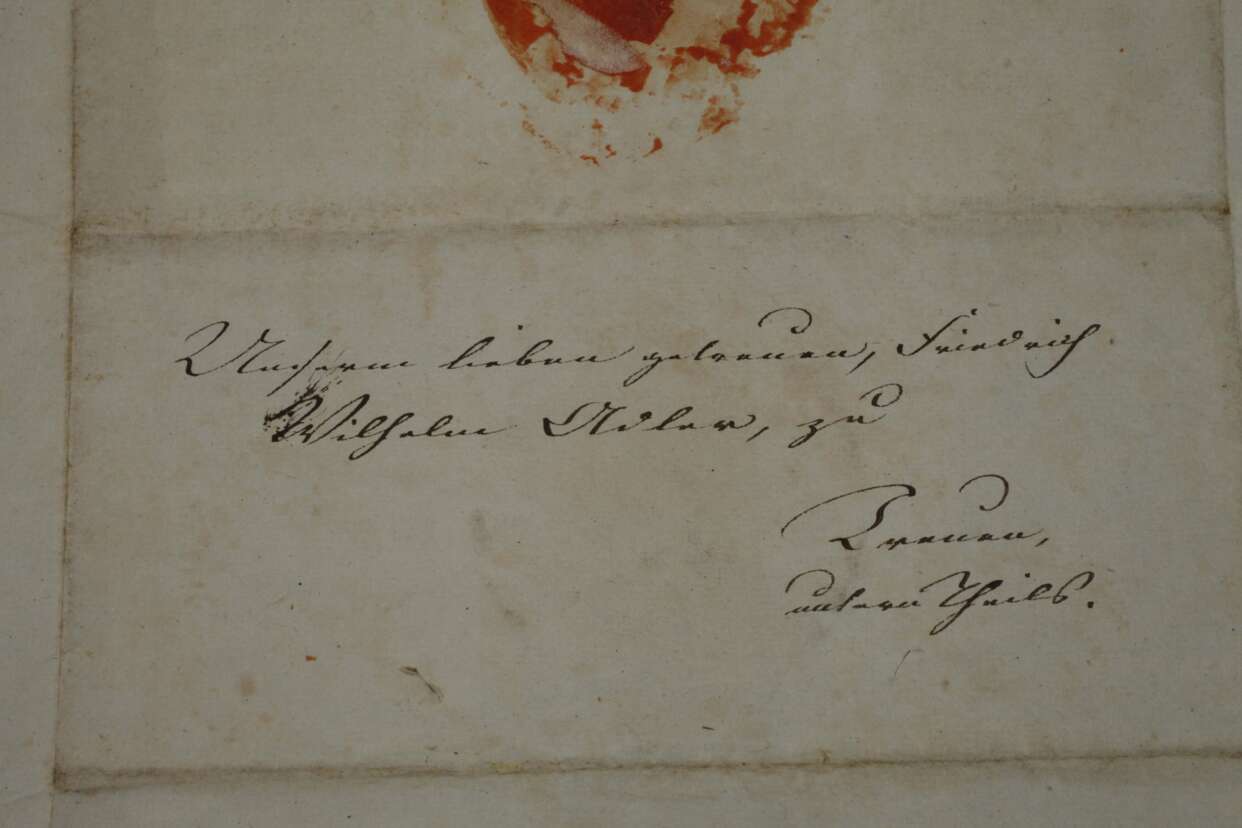 Unserm lieben getreuen, Friedrich
Wilhelm Adler, zu
Treuen,
untern Theils.